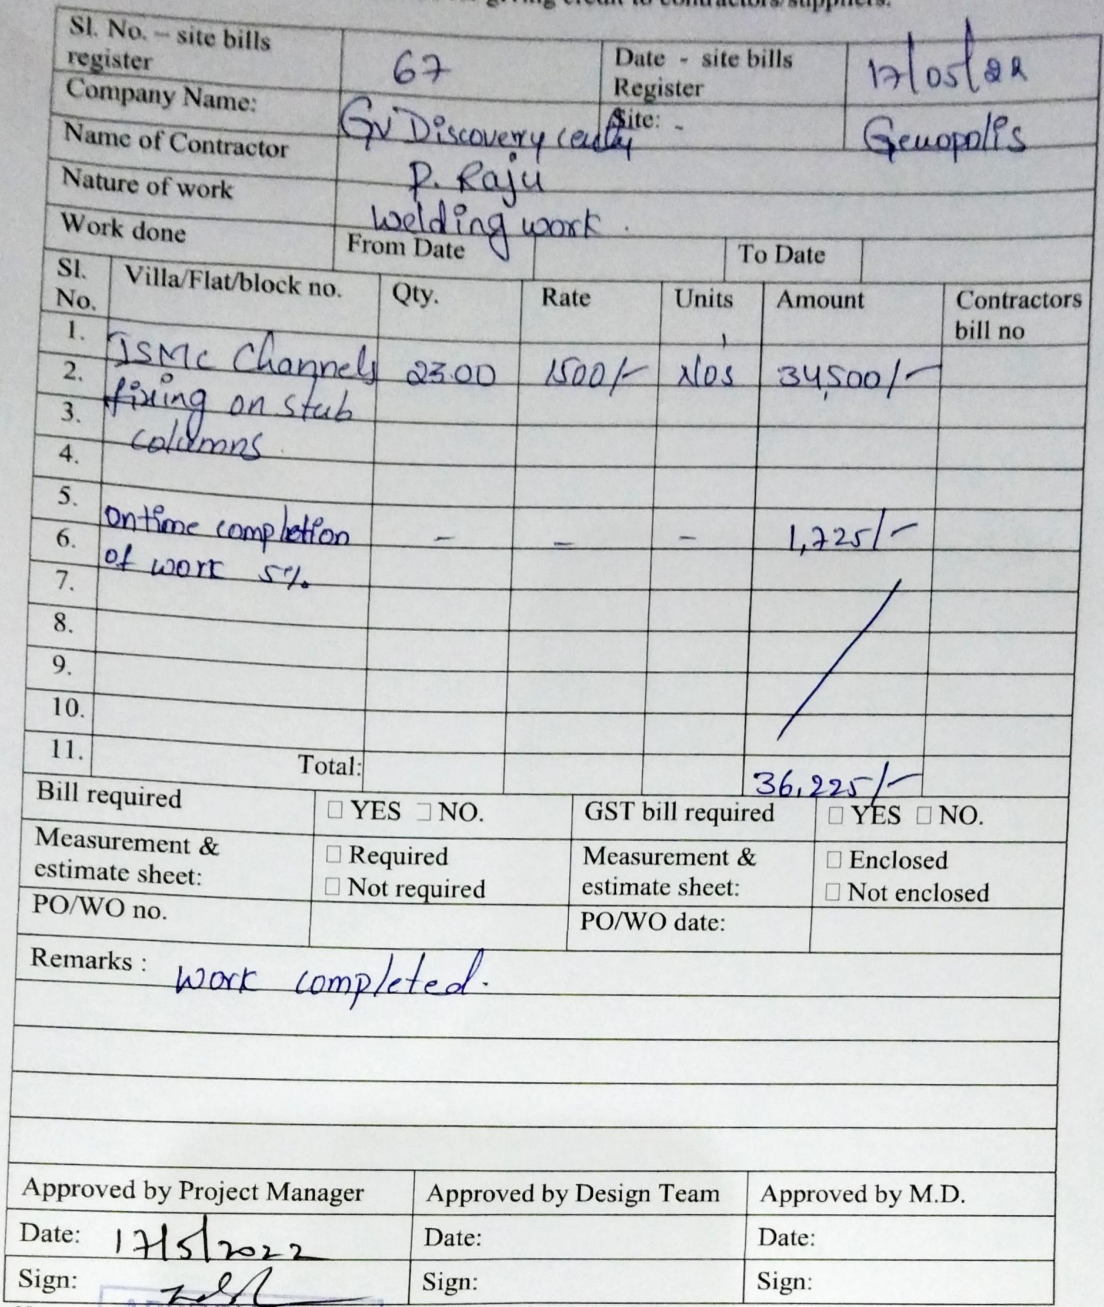 giving credit to contractors/suppliers.
Sl. No. – site bills register 67 Date - site bills Register 17/05/22
Company Name: GV Discovery Site: - Genopolis
Name of Contractor P. Raju
Nature of work Welding work.
Work done From Date To Date
Sl. No. Villa/Flat/block no. Qty. Rate Units Amount Contractors bill no
1.
2. ISMC Channels 23.00 1500/- Nos 34,500/-
3. fixing on stub
4. columns.
5.
6. Ontime completion - - - 1,725/-
7. of work 5%
8.
9.
10.
11. Total: 36,225/-
Bill required □ YES □ NO. GST bill required □ YES □ NO.
Measurement & estimate sheet: □ Required □ Not required Measurement & estimate sheet: □ Enclosed □ Not enclosed
PO/WO no. PO/WO date:
Remarks : Work completed.
Approved by Project Manager Approved by Design Team Approved by M.D.
Date: 17/5/2022 Date: Date:
Sign: Sign: Sign: